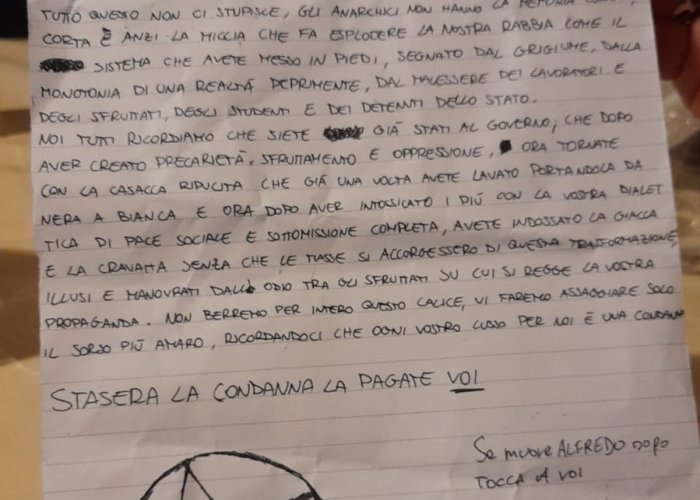 TUTTO QUESTO NON CI STUPISCE, GLI ANARCHICI NON HANNO LA MEMORIA
CORTA E ANZI LA MICCIA CHE FA ESPLODERE LA NOSTRA RABBIA COME IL
SISTEMA CHE AVETE MESSO IN PIEDI, SEGNATO DAL GRIGIUME, DALLA
MONOTONIA DI UNA REALTÀ DEPRIMENTE, DAL MALESSERE DEI LAVORATORI E
DEGLI SFRUTTATI, DEGLI STUDENTI E DEI DETENUTI DELLO STATO.
NOI TUTTI RICORDIAMO CHE SIETE GIÀ STATI AL GOVERNO, CHE DOPO
AVER CREATO PRECARIETÀ, SFRUTTAMENTO E OPPRESSIONE, ORA TORNATE
CON LA CASACCA RIPULITA CHE GIÀ UNA VOLTA AVETE LAVATO PORTANDOLA DA
NERA A BIANCA E ORA DOPO AVER INTOSSICATO I PIÙ CON LA VOSTRA DIALET
TICA DI PACE SOCIALE E SOTTOMISSIONE COMPLETA, AVETE INDOSSATO LA GIACCA
E LA CRAVATTA SENZA CHE LE MASSE SI ACCORGESSERO DI QUESTA TRASFORMAZIONE,
ILLUSI E MANOVRATI DALL'ODIO TRA GLI SFRUTTATI SU CUI SI REGGE LA VOSTRA
PROPAGANDA. NON BERREMO PER INTERO QUESTO CALICE, VI FAREMO ASSAGGIARE SOLO
IL SORSO PIÙ AMARO, RICORDANDOCI CHE OGNI VOSTRO LUSSO PER NOI È UNA CONDANNA
STASERA LA CONDANNA LA PAGATE VOI
Se muore ALFREDO DOPO
TOCCA A VOI